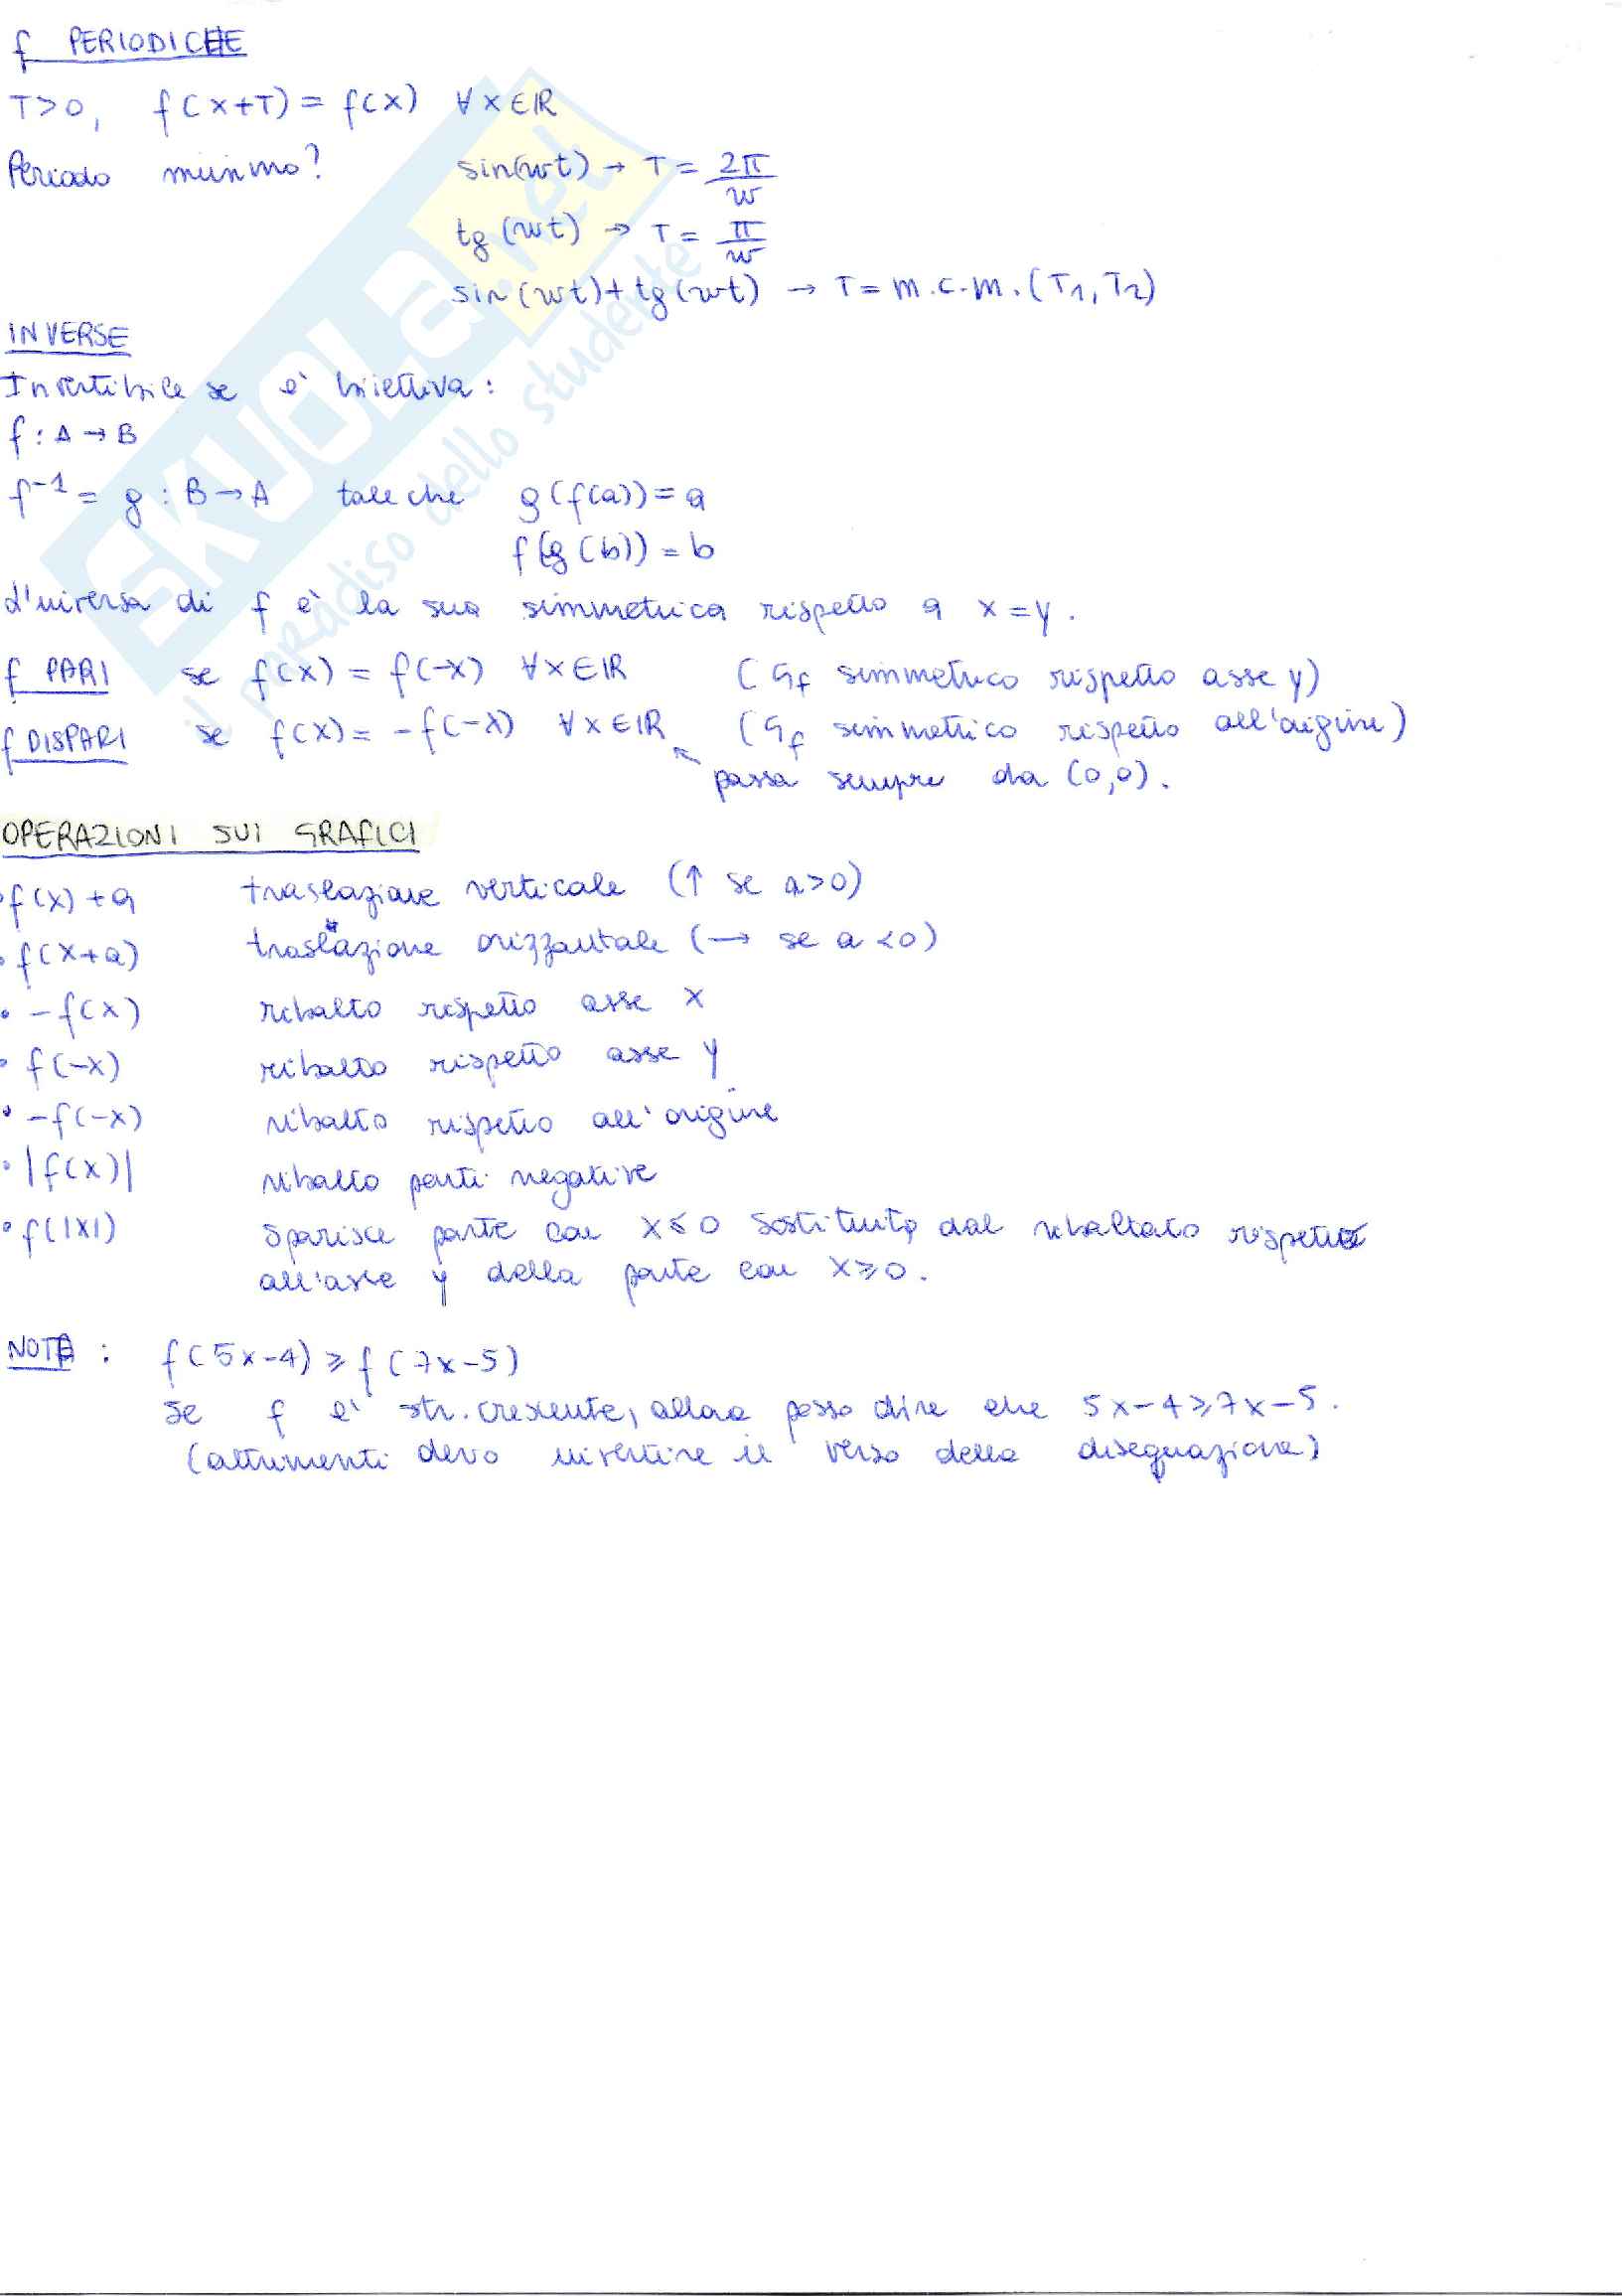 f PERIODICHE
T>0, f(x+T) = f(x) ∀x∈ℝ
Periodo minimo? sin(wt) → T = 2π/w
tg(wt) → T = π/w
sin(wt)+tg(wt) → T = m.c.m.(T₁,T₂)
INVERSE
Invertibile se è biettiva:
f: A→B
f⁻¹ = g : B→A tale che g(f(a)) = a
f(g(b)) = b
L'inversa di f è la sua simmetrica rispetto a x=y.
f PARI se f(x) = f(-x) ∀x∈ℝ (Gf simmetrico rispetto asse y)
f DISPARI se f(x) = -f(-x) ∀x∈ℝ (Gf simmetrico rispetto all'origine)
passa sempre da (0,0).
OPERAZIONI SUI GRAFICI
• f(x)+a traslazione verticale (↑ se a>0)
• f(x+a) traslazione orizzontale (→ se a<0)
• -f(x) ribalto rispetto asse x
• f(-x) ribalto rispetto asse y
• -f(-x) ribalto rispetto all'origine
• |f(x)| ribalto parti negative
• f(|x|) sparisce parte con x≤0 sostituita dal ribaltato rispetto
all'asse y della parte con x≥0.
NOTA: f(5x-4) ≥ f(7x-5)
se f è str. crescente, allora posso dire che 5x-4≥7x-5.
(altrimenti devo invertire il verso della diseguazione)
SKUOLA.net
il paradiso dello studente